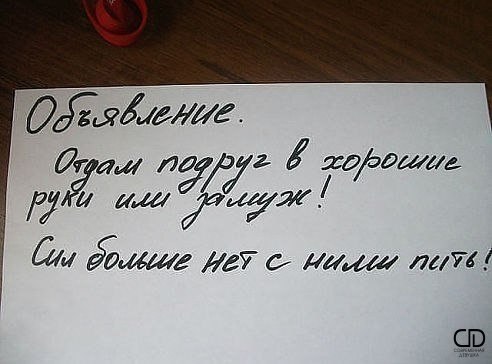 Объявление.
Отдам подруг в хорошие
руки или замуж!
Сил больше нет с ними пить!
CD
СОВРЕМЕННАЯ
ДЕВУШКА